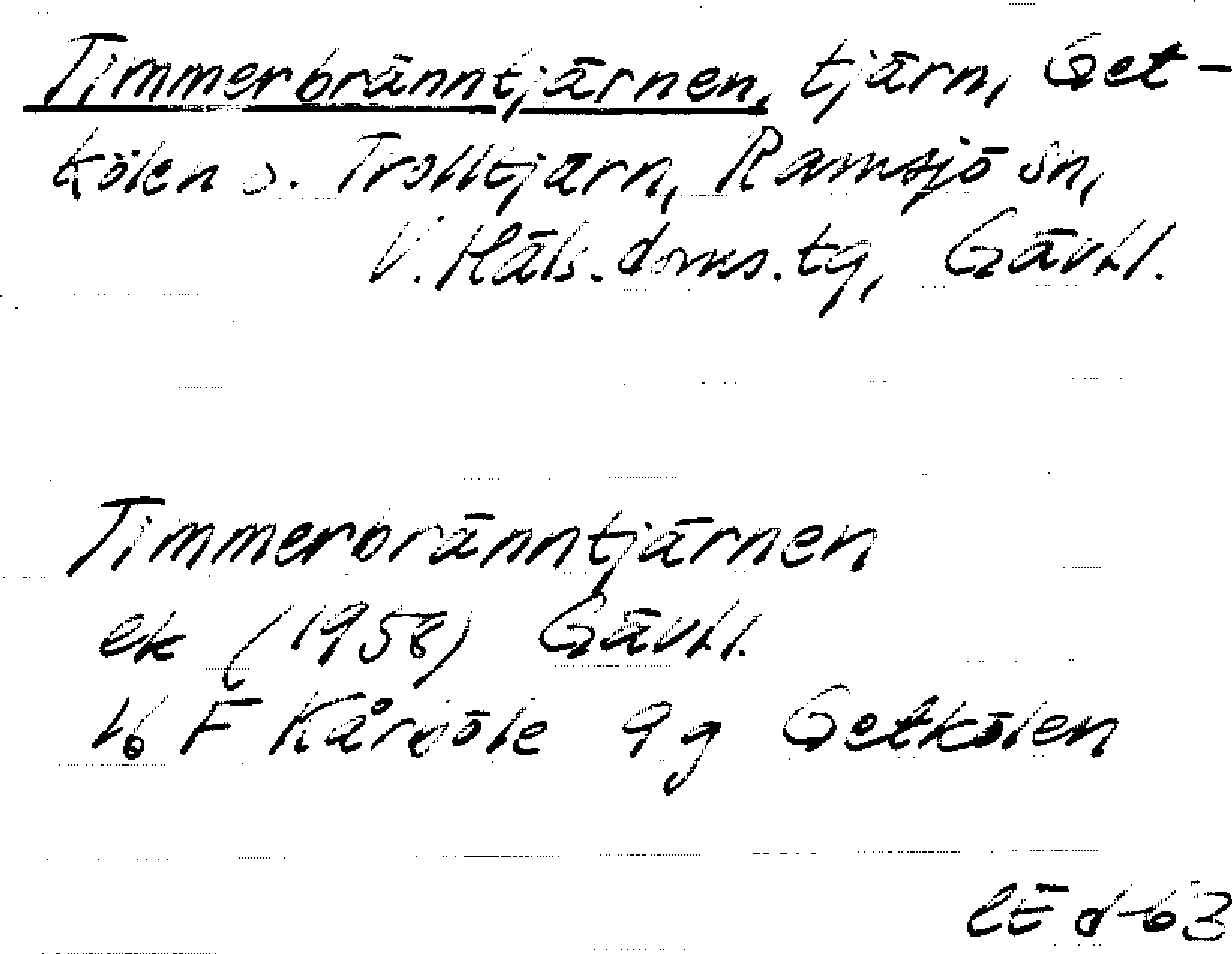 Timmerbränntjärnen, tjärn, Get-
kölen o. Trolltjärn, Ramsjö sn,
V. Häls. doms. tg, Gävl.
Timmerbränntjärnen
ek (1958) Gävl.
16 F Kårböle 9 g Getkölen
d 63